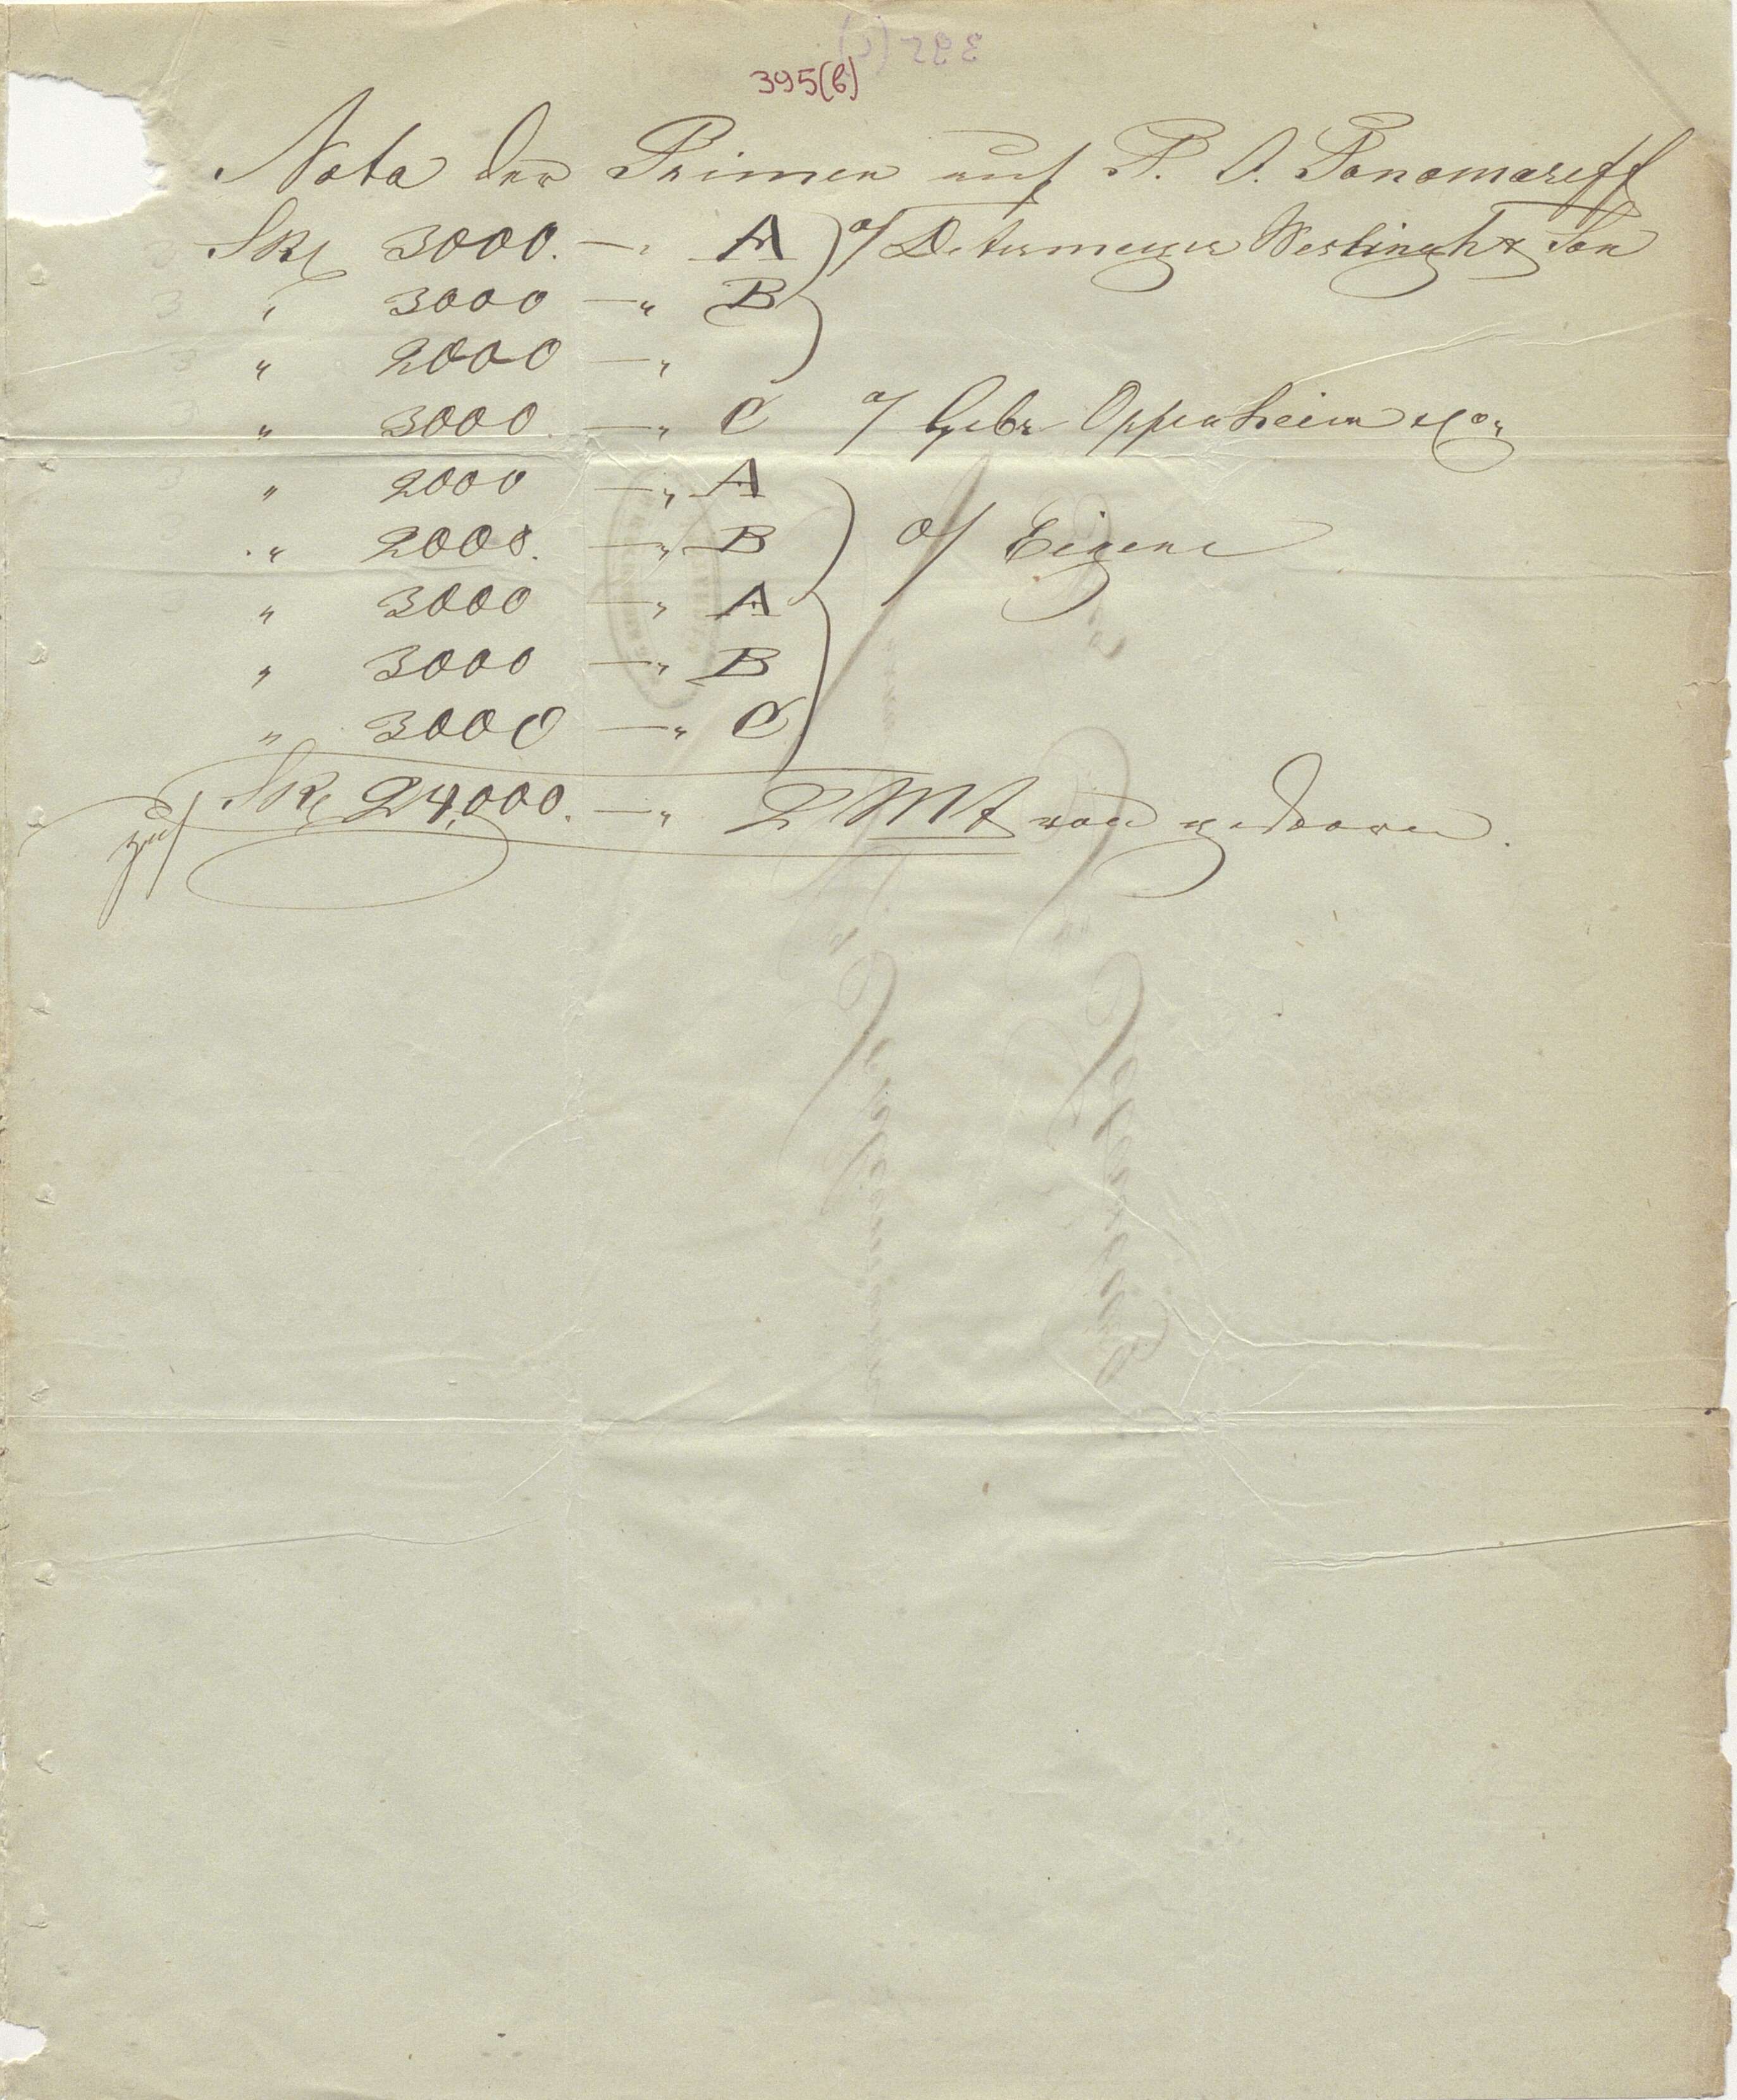 395(b)
Nota der Primen auf P. A. Ponomareff
SRf 3000. — " A a/ Determeyer Weslingh & Son
" 3000 — " B
" 2000 — "
" 3000. — " C a/ Gebr Oppenheim
" 2000 — " A
" 2000. — " B a/ Eigene
" 3000 — " A
" 3000 — " B
" 3000 — " C
SRf 24,000. — " 2 Mt